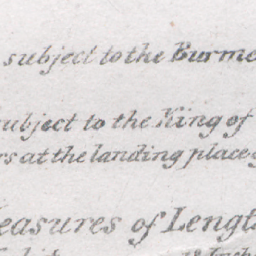 subject to the Burme
ubject to the King of
rs at the landing place
easures of Lengt